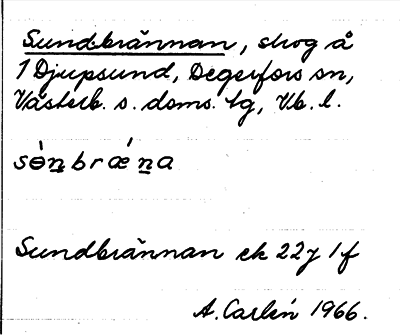 Sundbrännan, skog å
1 Djupsund, Degerfors sn,
Västerb. s. doms. tg, Vb. l.
sɵ́n̲brǽn̲a
Sundbrännan ek 22 J 1 f
A. Carlén 1966.